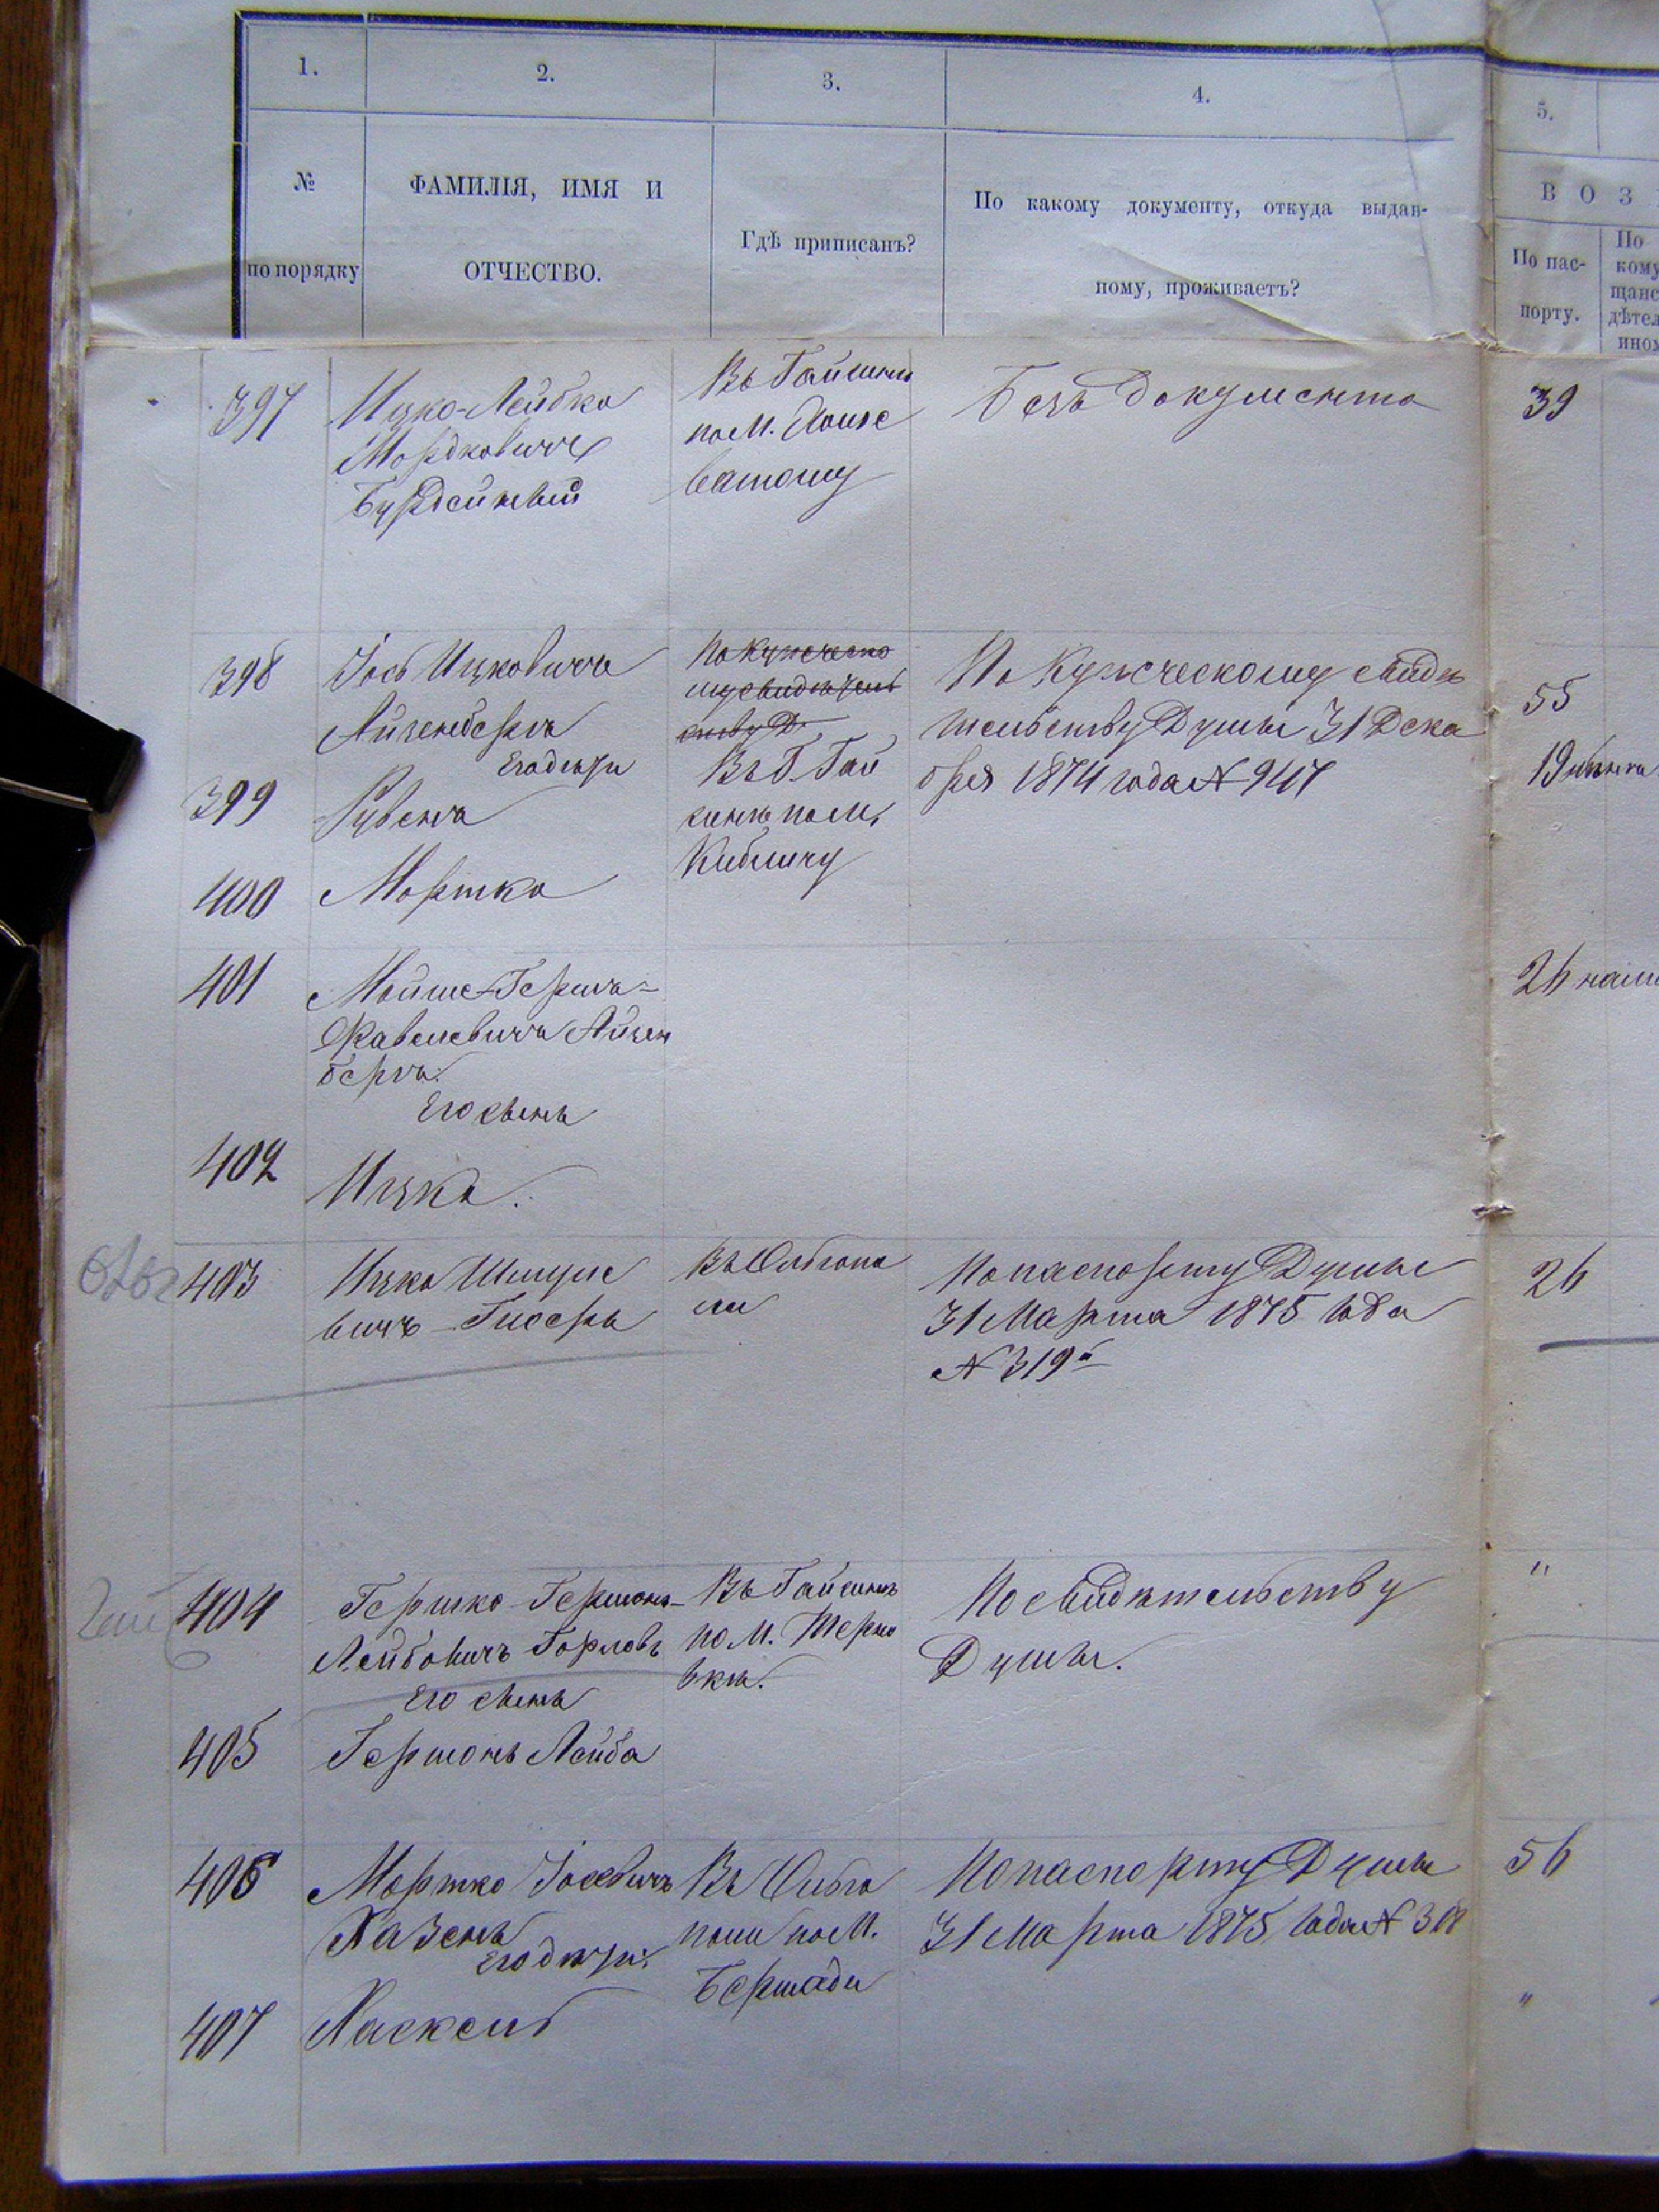 1.
2.
3.
4.
5.
№
по порядку
ФАМИЛІЯ, ИМЯ И
ОТЧЕСТВО.
Гдѣ приписанъ?
По какому документу, откуда выдан-
ному, проживаетъ?
В О З
По пас-
порту.
По
кому
щанс
дѣтел
ином
397
Ицко-Лейбко
Мордковичъ
Въ Гайсинѣ
по м.
ватому
Безъ документа
39
398
Іось Ицковичъ
Айзенбергъ
Его дѣти
По купческо
му свидѣтель
ству Д
Въ Г. Гай
синѣ по м.
Кибличу
По Купческому свидѣ
тельству Думы 31 Дека
бря 1874 года № 947
55
399
Рувенъ
19
400
Мортко
401
Мойше-Гершъ-
Айзен
бергъ.
Его сынъ
26
402
Ицко.
403
Ицко Шмуле
вичъ
Въ Ольгопо
ли
По паспорту Думы
31 Марта 1875 года
№ 319
26
404
Гершко Гершонъ-
Лейбовичъ Горловъ
Его сынъ
Въ Гайсинѣ
по м. Терно
вкѣ.
По свидѣтельству
Думы.
"
405
Гершонъ Лейба
406
Мортко Іосевичъ
Хазенъ
Его дѣти:
Въ Ольго
поли по м.
Бершади
По паспорту Думы
31 Марта 1875 года №
56
407
Хаскель
"